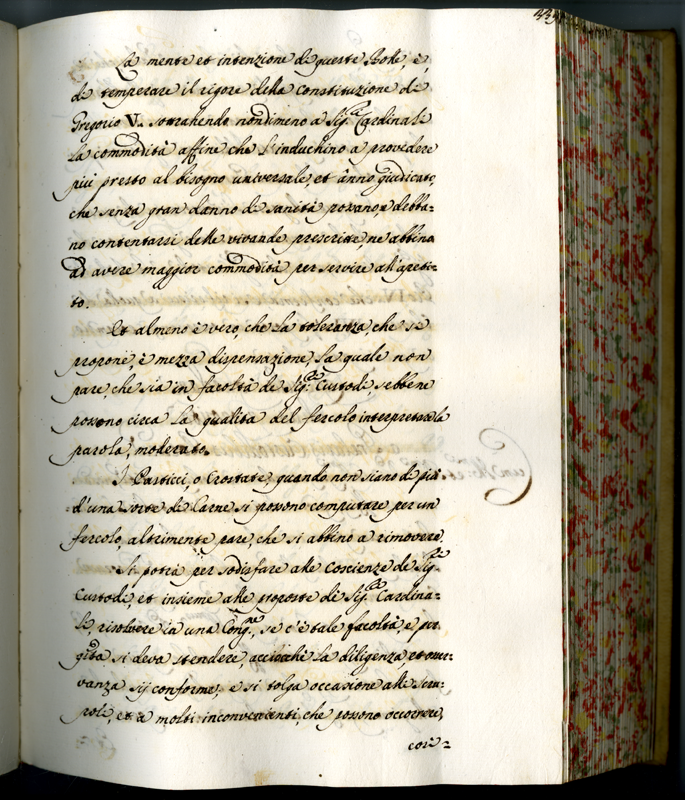 La mente et intenzione di queste Bolle, è,
di temperare il rigore della Constituzione di
Gregorio V. sottrahendo nondimeno a Sig.ri Cardinali
la commodità affine che l'induchino a provedere
più presto al bisogno universale, et ànno giudicato,
che senza gran danno di sanità possano, e debba=
no contentarsi delle vivande prescritte, ne abbino
ad avere maggior commodità per servire all'apeti=
to.
Et almeno è vero, che la toleranza, che si
propone, è mezza dispensazione, la quale non
pare, che sia in facoltà de Sig.ri Custodi, sebbene
possono circa la qualità del fercolo interpretare la
parola, moderato.
I Pasticci, o Crostate, quando non siano di più
d'una sorte di Carne si possono computare per un
fercolo, altrimente pare, che si abbino a rimovere.
Si potrà per sodisfare alle Coscienze de Sig.ri
Custodi, et insieme alle proposte di Sig.ri Cardina=
li, risolvere in una Cong.ne, se c'è tale facoltà, e per
q.ta si deva stendere, acciocchè la diligenza, et osser=
vanza sij conforme, e si tolga occasione alli scru=
poli, et a molti inconvenienti, che possono occorrere,
così=